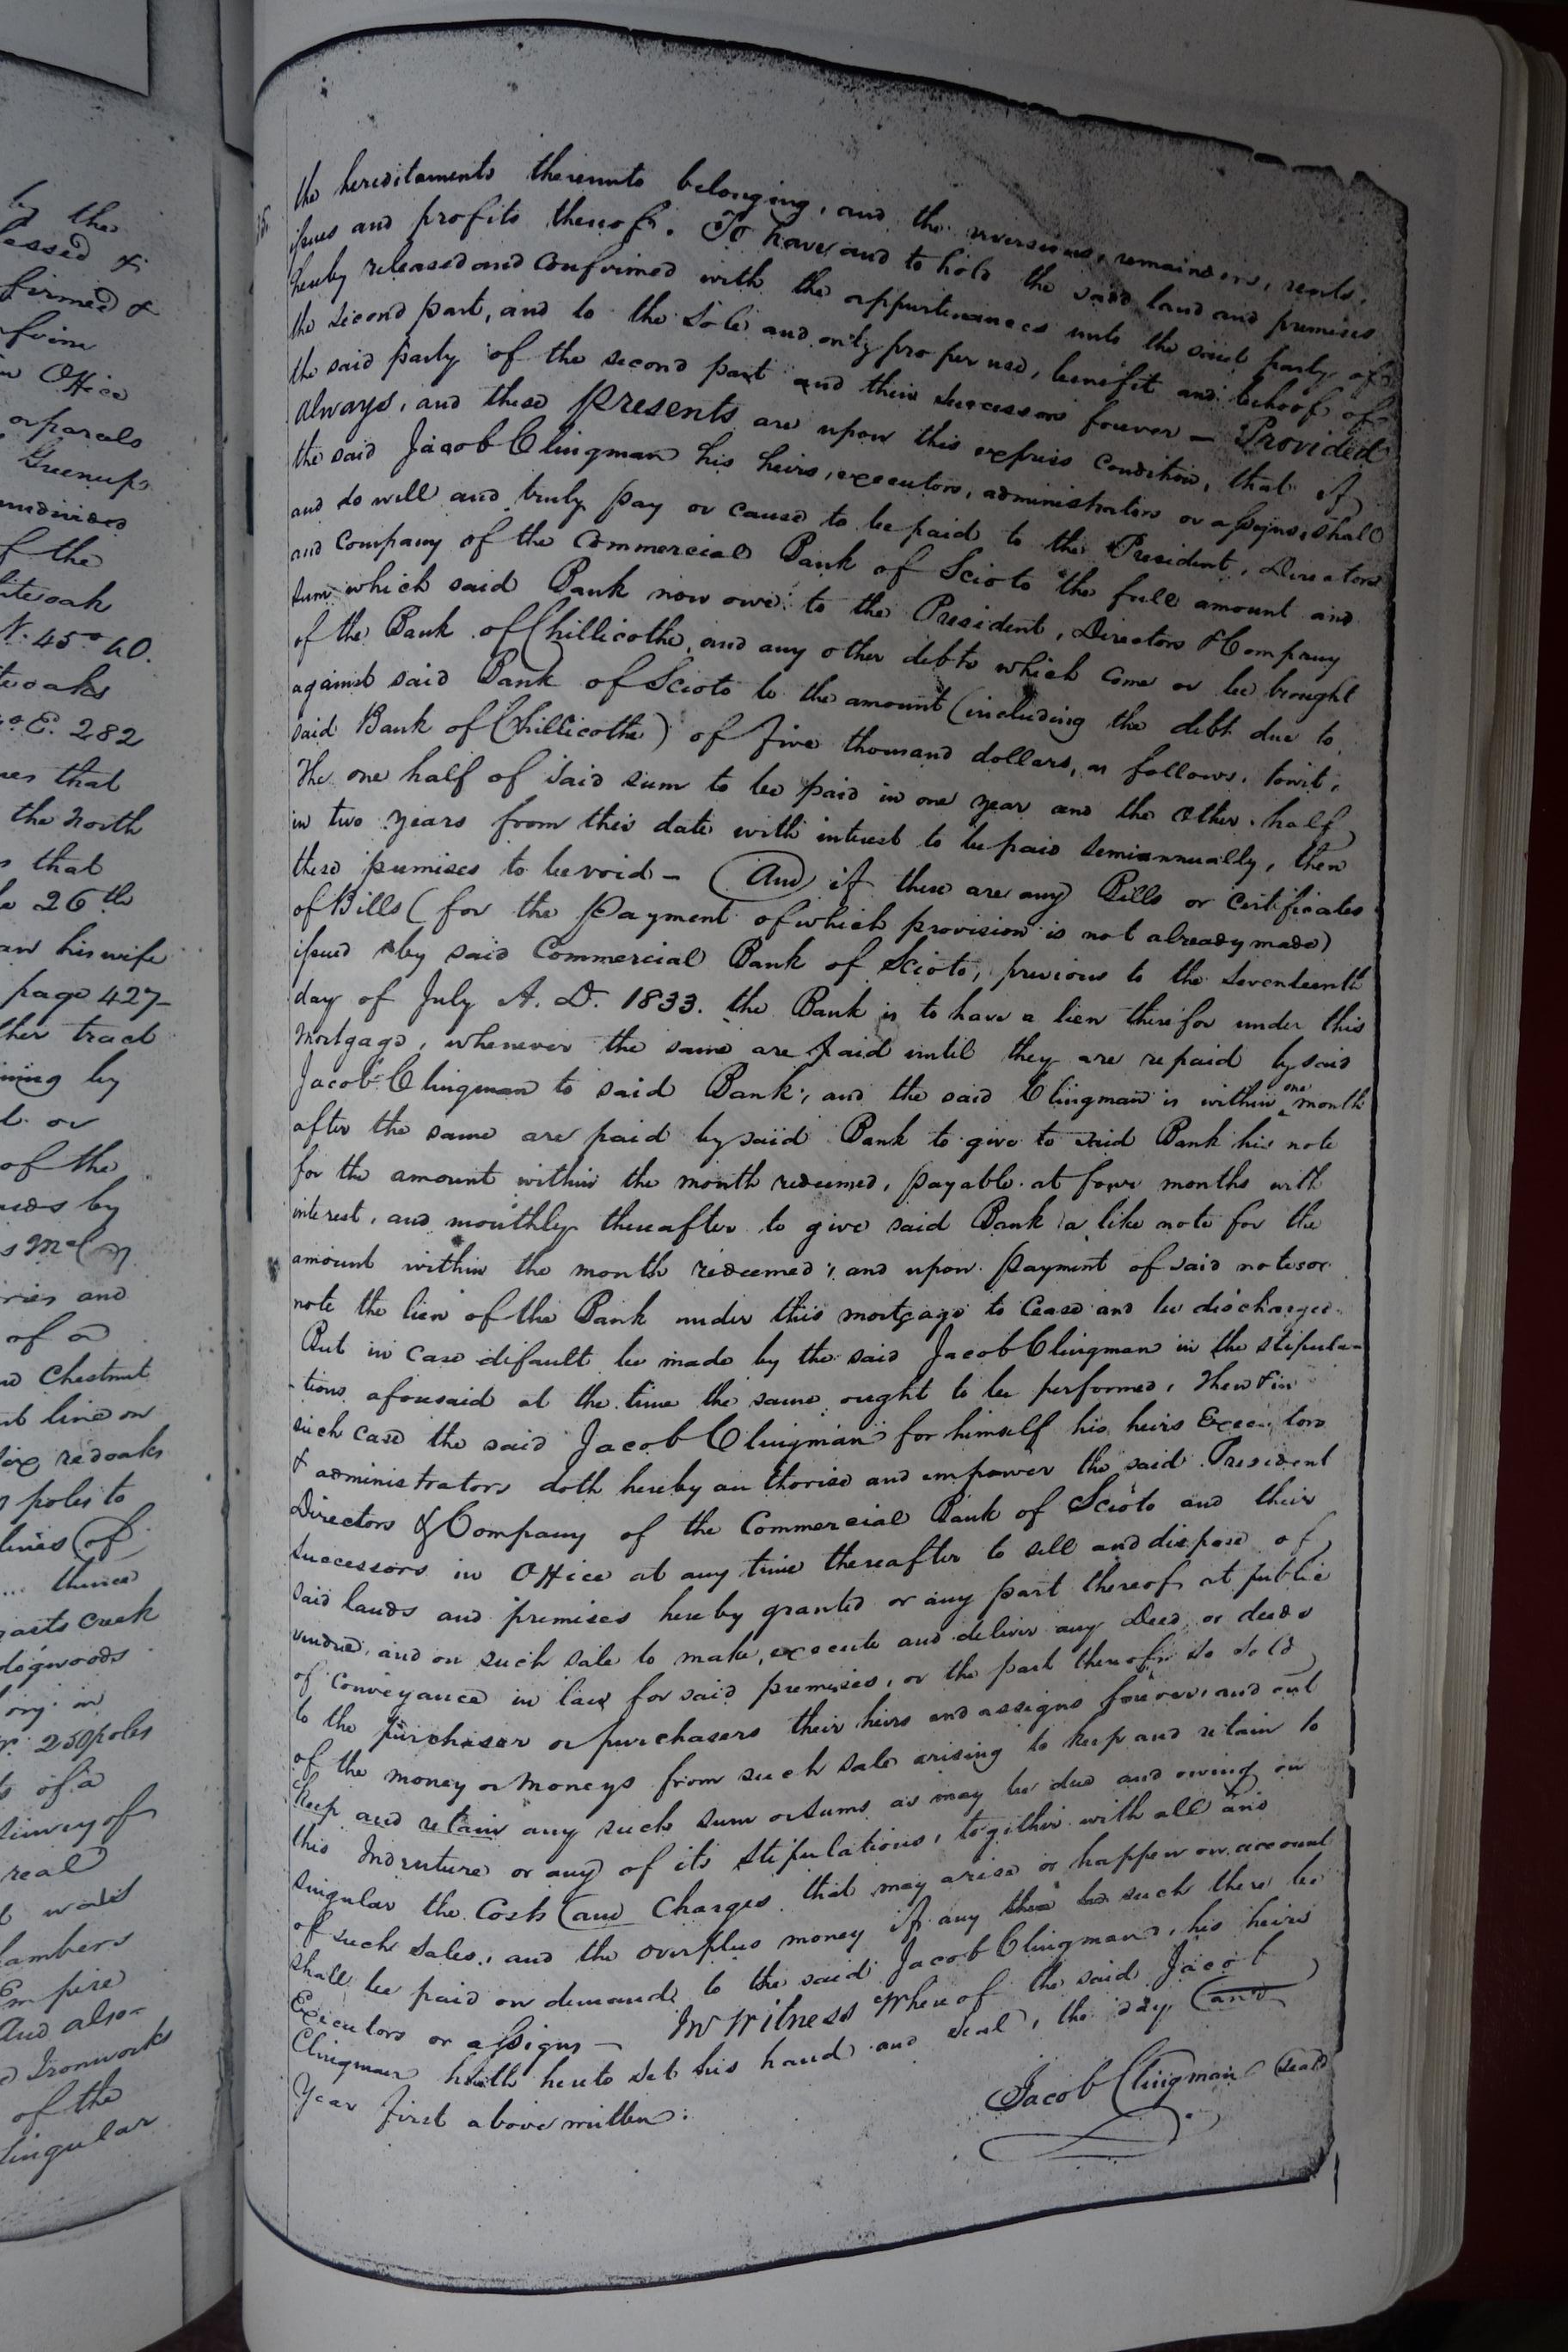 by the
essed &
firmed &
nfirm
in Office
or parcels
Greenup
undivided
of the
hite oak
N. 45° 60.
te oaks
° E. 282
es that
the North
s that
26th
an his wife
page 427-
ther tract
ining by
l. or
of the
eeds by
ries and
of a
and Chestnut
line on
six red oaks
poles to
lines of
... thence
garts creek
dogwoods
ory in
250 poles
of a
Survey of
real
hambers
Empire
And also
d Ironworks
of the
Singular
the hereditaments thereunto belonging, and the reversions, remainders, rents,
issues and profits thereof. To have and to hold the said land and premises
hereby released and confirmed with the appurtenances unto the said party of
the second part, and to the sole and only proper use, benefit and behoof of
the said party of the second part and their successors forever — Provided
always, and these Presents are upon this express condition, that if
the said Jacob Clingman his heirs, executors, administrators or assigns, shall
and do well and truly pay or cause to be paid to the President, Directors
and Company of the Commercial Bank of Scioto the full amount and
sum which said Bank now owe to the President, Directors & Company
of the Bank of Chillicothe, and any other debts which come or be brought
against said Bank of Scioto to the amount (including the debt due to
said Bank of Chillicothe) of five thousand dollars, as follows, towit,
The one half of said sum to be paid in one year and the other half
in two years from this date with interest to be paid semiannually, then
these premises to be void - And if there are any Bills or certificates
of Bills (for the Payment of which provision is not already made)
issued by said Commercial Bank of Scioto, previous to the seventeenth
day of July A. D. 1833. the Bank is to have a lien therefor under this
mortgage, whenever the same are paid until they are repaid by said
Jacob Clingman to said Bank; and the said Clingman is within one month
after the same are paid by said Bank to give to said Bank his note
for the amount within the month redeemed, payable at four months with
interest, and monthly thereafter to give said Bank a like note for the
amount within the month redeemed; and upon payment of said notes or
note the lien of the Bank under this mortgage to cease and be discharged.
But in case difault be made by the said Jacob Clingman in the stipula-
-tions aforesaid at the time the same ought to be performed, then & in
such case the said Jacob Clingman for himself his heirs Executors
& administrators doth hereby authorise and empower the said President
Directors & Company of the Commercial Bank of Scioto and their
successors in Office at any time thereafter to sell and dispose of
said lands and premises hereby granted or any part thereof at public
vendue, and on such sale to make, execute and deliver any Deed or deeds
of conveyance in law for said premises, or the part thereof so sold
to the purchaser or purchasers their heirs and assigns forever, and out
of the money or moneys from such sale arising to keep and retain to
keep and retain any such sum or sums as may be due and owing on
this Indenture or any of its stipulations, together with all and
singular the Costs and Charges that may arise or happen on account
of such sales, and the overplus money if any such there be
shall be paid on demand to the said Jacob Clingman, his heirs
Executors or assigns — In Witness Whereof the said Jacob
Clingman hath hereto set his hand and seal, the day and
Year first above written.
Jacob Clingman Seal